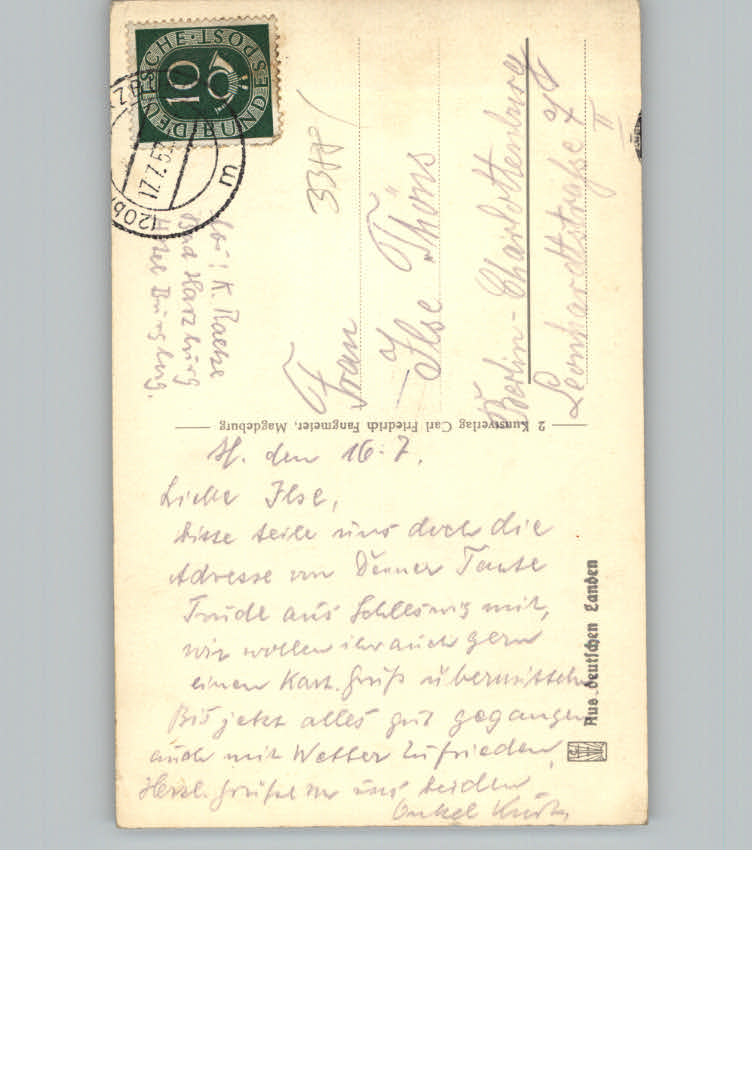 DEUTSCHE BUNDESPOST
10
(20b)
17.7.5
m
Abs! K.
Bad Harzburg
Hotel Burgberg.
Frau
Ilse Thöns
Berlin-Charlottenburg
Leonhardtstraße
II
2 Kunstverlag Carl Friedrich Fangmeier, Magdeburg
H. den 16.7.
Liebe Ilse,
bitte teile uns doch die
Adresse von Deiner Tante
Trude aus Schleswig mit,
wir wollen ihr auch gern
einen Kart.gruß übermitteln
Bis jetzt alles gut gegangen
auch mit Wetter zufrieden,
Herzl. Grüße von uns beiden
Onkel
Aus deutschen Landen